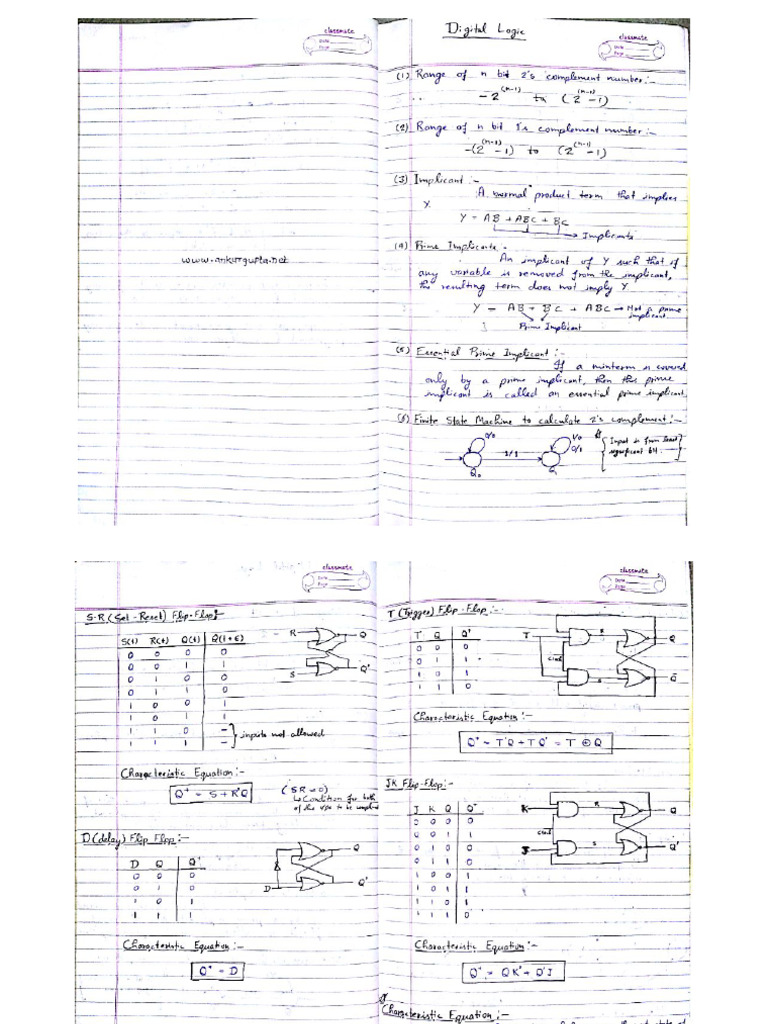 classmate
Date
Page
www.ankurgupta.net
Digital Logic
classmate
Date
Page
(1) Range of n bit 2's complement number:-
-2^(n-1) to (2^(n-1) -1)
(2) Range of n bit 1's complement number:-
-(2^(n-1) -1) to (2^(n-1) -1)
(3) Implicant :-
A normal product term that implies
Y
Y = AB + ABC + BC
Implicants
(4) Prime Implicants :-
An implicant of Y such that if
any variable is removed from the implicant,
the resulting term does not imply Y
Y = AB + BC + ABC → Not a prime
implicant
Prime Implicant
(5) Essential Prime Implicant :-
If a minterm is covered
only by a prime implicant, then this prime
implicant is called an essential prime implicant
Finite State Machine to calculate 2's complement:-
0/0
1/1
1/0
0/1
Q0
Q1
Input is from least
significant bit
classmate
Date
Page
S-R (Set-Reset) Flip-Flop
S(t) R(t) Q(t) Q(t+ε)
0 0 0 0
0 0 1 1
0 1 0 0
0 1 1 0
1 0 0 1
1 0 1 1
1 1 0 -
1 1 1 -
inputs not allowed
R
Q
S
Q'
Characteristic Equation:-
Q+ = S + R'Q
(SR = 0)
↳ Condition for both
of the
D (delay) Flip Flop:-
D Q Q+
0 0 0
0 1 0
1 0 1
1 1 1
Q
D
Q'
Characteristic Equation:-
Q+ = D
classmate
Date
Page
T (Trigger) Flip-Flop:-
T Q Q+
0 0 0
0 1 1
1 0 1
1 1 0
T
R
Q
S
Q̄
Characteristic Equation:-
Q+ = T'Q + TQ' = T ⊕ Q
JK Flip-Flop:-
J K Q Q+
0 0 0 0
0 0 1 1
0 1 0 0
0 1 1 0
1 0 0 1
1 0 1 1
1 1 0 1
1 1 1 0
K
R
Q
J
S
Q'
Characteristic Equation:-
Q+ = QK' + Q'J
Characteristic Equation:-